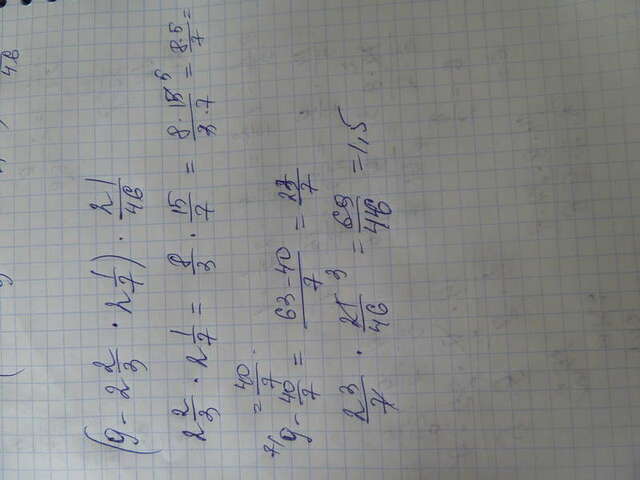 (9 - 2 2/3 · 2 1/7) · 21/46
2 2/3 · 2 1/7 = 8/3 · 15/7 = 8·15 5/3·7 = 8·5/7 =
= 40/7.
7/ 9 - 40/7 = 63-40/7 = 23/7
23/7 · 21 3/46 = 69/46 = 1,5
46